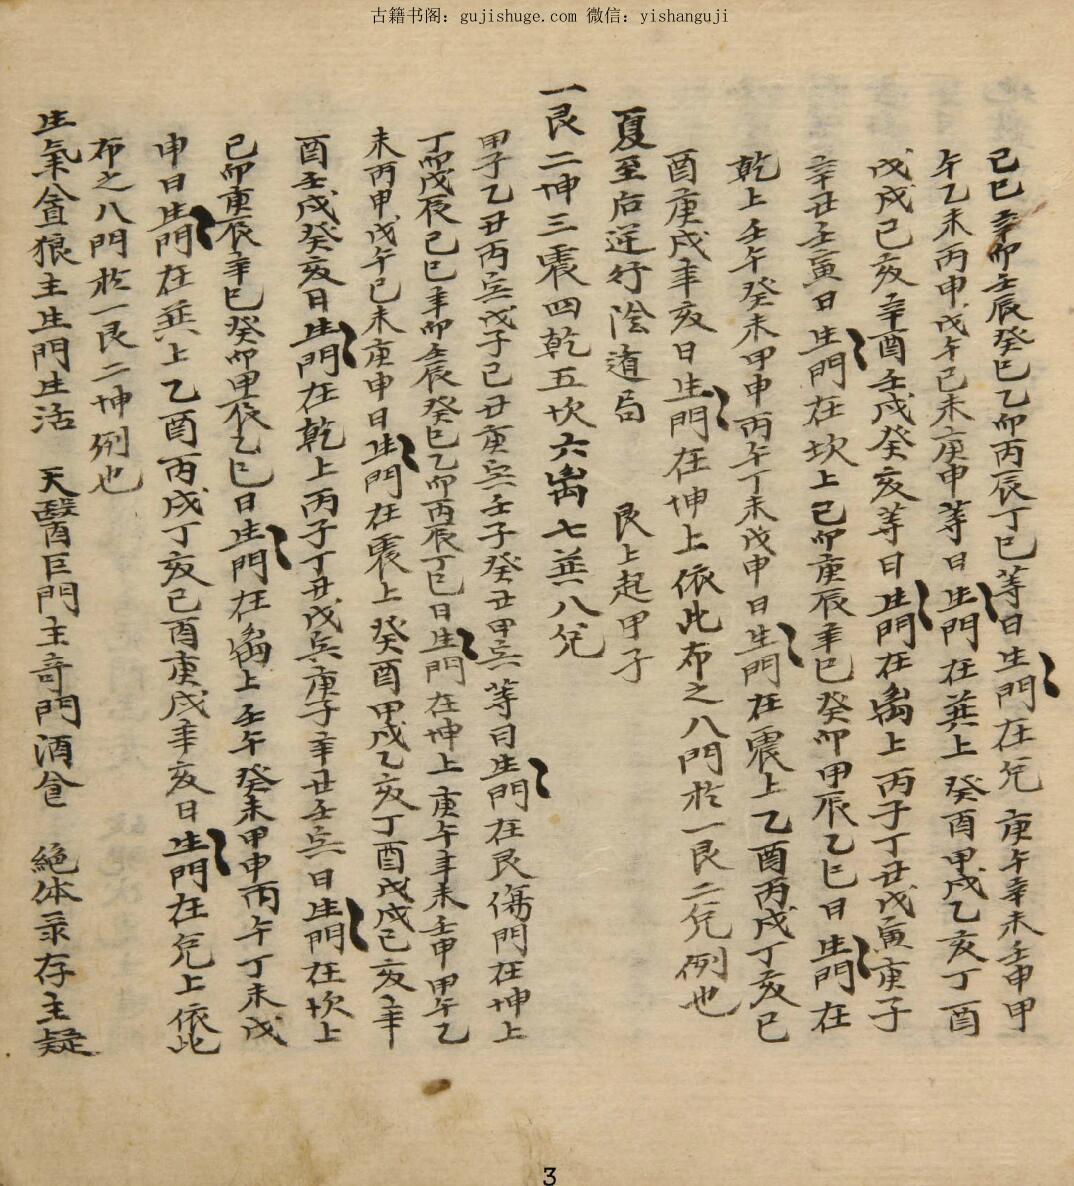 古籍书阁：gujishuge.com 微信：yishanguji
己巳辛卯壬辰癸巳乙卯丙辰丁巳等日生門在兌 庚午辛未壬申甲
午乙未丙申戊午己未庚申等日生門在巽上 癸酉甲戌乙亥丁酉
戊戌己亥辛酉壬戌癸亥等日生門在离上丙子丁丑戊寅庚子
辛丑壬寅日生門在坎上己卯庚辰辛巳癸卯甲辰乙巳日生門在
乾上壬午癸未甲申丙午丁未戊申日生門在震上乙酉丙戌丁亥己
酉庚戌辛亥日生門在坤上依此布之八門於一艮二兌例也
夏至后逆行陰道局 艮上起甲子
一艮二坤三震四乾五坎六离七巽八兌
甲子乙丑丙寅戊子己丑庚寅壬子癸丑甲寅等日生門在艮傷門在坤上
丁卯戊辰己巳辛卯壬辰癸巳乙卯丙辰丁巳日生門在坤上庚午辛未壬申甲午乙
未丙申戊午己未庚申日生門在震上癸酉甲戌乙亥丁酉戊戌己亥辛
酉壬戌癸亥日生門在乾上丙子丁丑戊寅庚子辛丑壬寅日生門在坎上
己卯庚辰辛巳癸卯甲辰乙巳日生門在离上壬午癸未甲申丙午丁未戊
申日生門在巽上乙酉丙戌丁亥己酉庚戌辛亥日生門在兌上依此
布之八門於一艮二坤例也
生氣貪狼主生門生活 天醫巨門主奇門酒食 絶体录存主疑
3